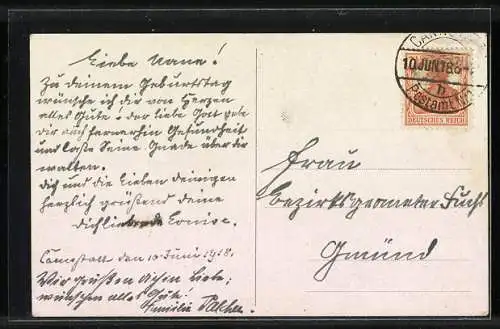 Liebe Nane!
Zu deinem Geburtstag
wünsche ich dir von Herzen
alles Gute! der liebe Gott gebe
dir auch fernerhin Gesundheit
und lasse Seine Gnade über dir
walten.
dich und die Lieben deinigen
herzlich grüßend deine
dichliebende Louise.
Cannstatt den 10 Juni 1918.
Wir grüßen Liebe;
wünschen alles Gute.
Familie
10 JUN 18
b
Postamt
DEUTSCHES REICH
Frau
Bezirksgeometer Fuchs
Gmünd